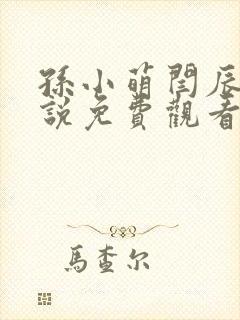 孫小萌閆辰
說免費觀看
馬查尔